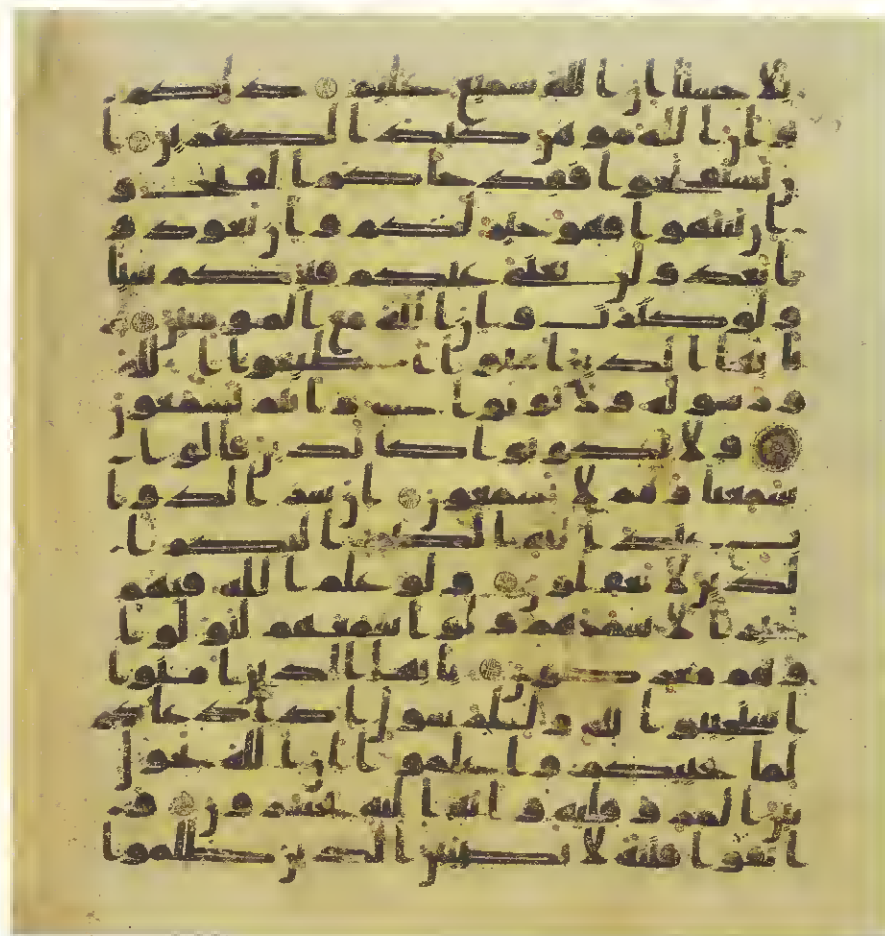 بلا حسنا ان الله سميع عليم ذلكم
وان الله موهن كيد الكفرين ا
ن تستفتحوا فقد جاكم الفتح و
ان تنتهوا فهو خير لكم وان تعودو
ا نعد ولن تغني عنكم فئتكم شيا
ولو كثرت وان الله مع المومنين
يايها الذين امنوا اطيعوا الله
ورسوله ولا تولوا عنه وانتم تسمعون
ولا تكونوا كالذين قالوا
سمعنا وهم لا يسمعون ان شر الدوا
ب عند الله الصم البكم ا
لذين لا يعقلون ولو علم الله فيهم
خيرا لاسمعهم ولو اسمعهم لتولوا
وهم معرضون يايها الذين امنوا
استجيبوا لله وللرسول اذا دعاكم
لما يحييكم واعلموا ان الله يحول
بين المر وقلبه وانه اليه تحشرون و
اتقوا فتنة لا تصيبن الذين ظلموا